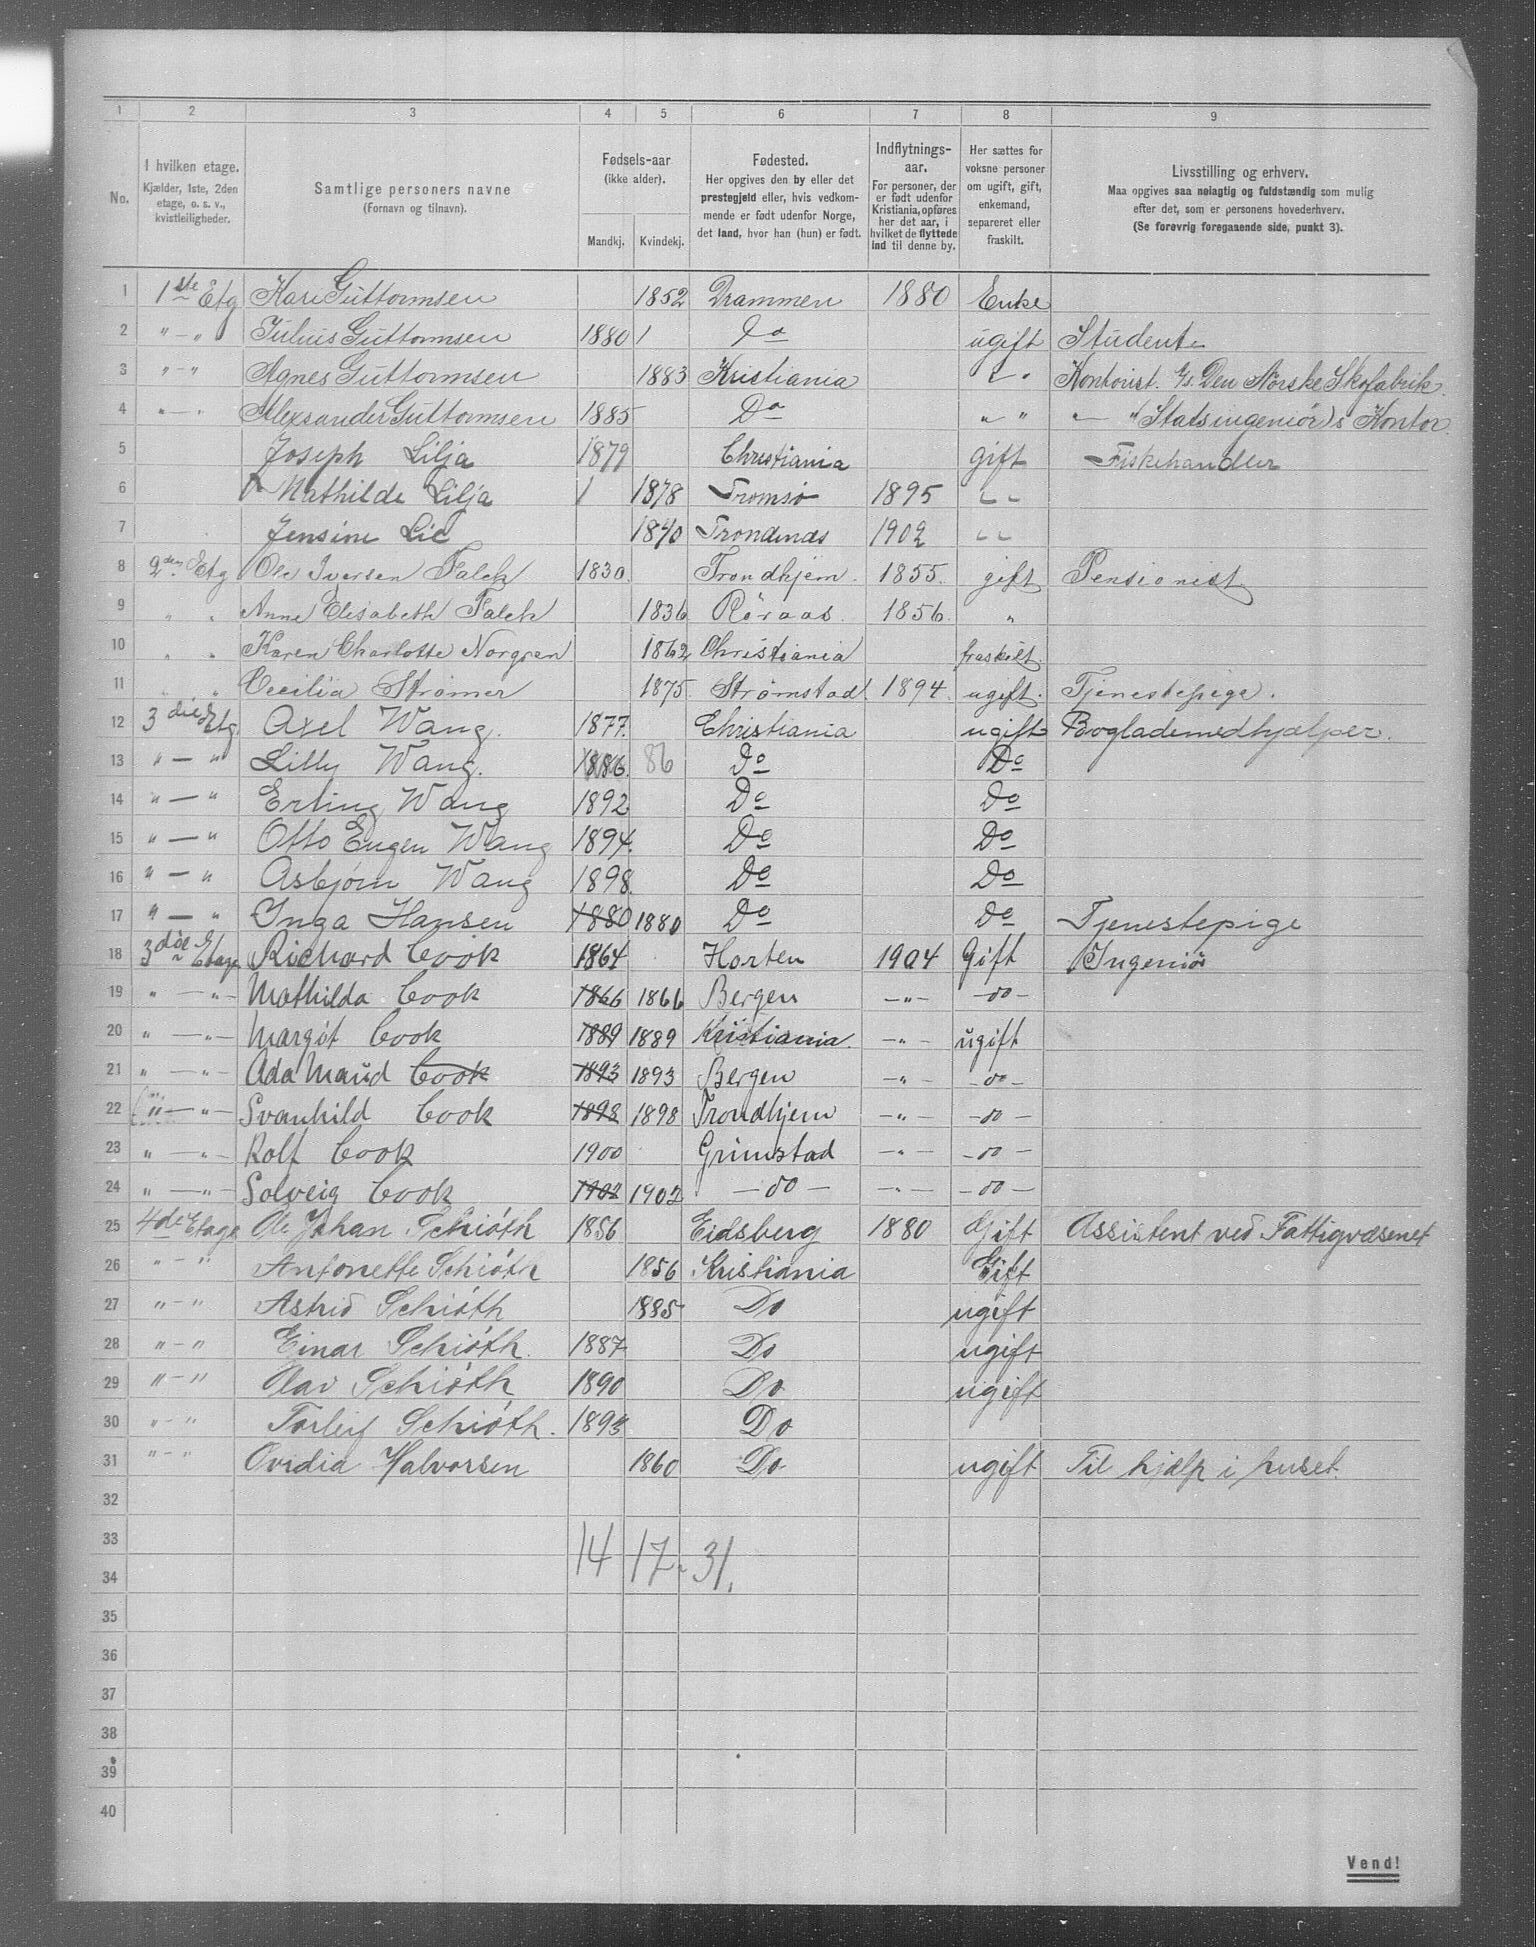 1 2 3 4 5 6 7 8 9
No.
I hvilken etage.
Kjælder, 1ste, 2den
etage, o. s. v.,
kvistleiligheder.
Samtlige personers navne
(Fornavn og tilnavn).
Fødsels-aar
(ikke alder).
Mandkj. Kvindekj.
Fødested.
Her opgives den by eller det
prestegjeld eller, hvis vedkom-
mende er født udenfor Norge,
det land, hvor han (hun) er født.
Indflytnings-
aar.
For personer, der
er født udenfor
Kristiania, opføres
her det aar, i
hvilket de flyttede
ind til denne by.
Her sættes for
voksne personer
om ugift, gift,
enkemand,
separeret eller
fraskilt.
Livsstilling og erhverv.
Maa opgives saa nøiagtig og fuldstændig som mulig
efter det, som er personens hovederhverv.
(Se forøvrig foregaaende side, punkt 3).
1 1ste Etg Kari Guttormsen 1852 Drammen 1880 Enke
2 " - " Julius Guttormsen 1880 1 Do ugift Student
3 " - " Agnes Guttormsen 1883 Kristiania " " Kontorist. A/s. Den Norske Skofabrik.
4 " - " Alexsander Guttormsen 1885 Do " " " - " (Statsingeniør)s Kontor
5 Joseph Lilja 1879 Christiania gift Fiskehandler
6 Mathilde Lilja 1 1878 Tromsö 1895 " "
7 Jensine Lie 1840 Trondenæs 1902 " "
8 2den Etg Ole Iversen Falck 1830. Trondhjem. 1855. gift Pensionist
9 " " Anne Elisabeth Falck 1836 Røraas. 1856. "
10 " " Karen Charlotte Norgren 1862 Christiania fraskilt.
11 " " Cecilia Strömer 1875. Strømstad. 1894. ugift. Tjenestepige.
12 3die Etg. Axel Wang. 1877. Christiania ugift Boglademedhjælper.
13 " - " Lilly Wang. 1886. 86 Do Do
14 " - " Erling Wang 1892 Do Do
15 " - " Otto Eugen Wang 1894. Do Do
16 " - " Asbjørn Wang 1898. Do Do
17 " - " Inga Hansen 1880 1880 Do Do Tjenestepige
18 3die Etage Richard Cook 1864 Horten 1904 Gift Ingeniør
19 " - " - Mathilda Cook 1866 1866 Bergen - " - - do -
20 " - " - Margit Cook 1889 1889 Kristiania. - " - ugift
21 " - " - Ada Maud Cook 1893 1893 Bergen - " - - do -
22 " - " - Svanhild Cook 1898 1898 Trondhjem - " - - do -
23 " - " - Rolf Cook 1900 Grimstad - " - - do -
24 " - " - Solveig Cook 1902 1902 - do - - " - - do -
25 4de Etage Ole Johan Schiøth 1856 Eidsberg 1880 Gift Assistent ved Fattigvæsenet
26 " - " Antonette Schiøth 1856 Kristiania Gift
27 " - " Astrid Schiøth 1885 Do ugift
28 " - " Einar Schiøth. 1887 Do ugift
29 " - " Olav Schiøth 1890 Do ugift
30 " - " Torleif Schiøth. 1893 Do
31 " - " Ovidia Halvorsen 1860 Do ugift Til hjælp i huset.
32
33
14 17 - 31.
34
35
36
37
38
39
40
Vend!